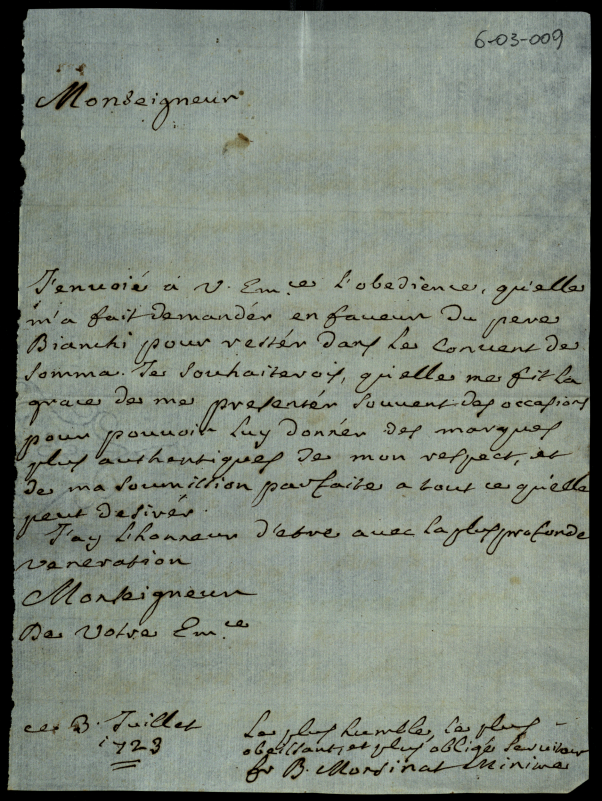 6-03-009
Monseigneur
J'envoié à V. Em.ce l'obedience, qu'elle
m'a fait demandér en faveur du pere
Bianchi pour restér dans le Convent de
Somma. Je souhaiterois, qu'elle me fit la
grace de me presentér souvent des occasions
pour pouvoir luy donnér des marques
plus authentiques de mon respect, et
de ma soumission parfaite a tout ce qu'elle
peut desirér.
J'ay l'honneur d'etre avec la plus profonde
veneration
Monseigneur
De Votre Em.ce
ce 3. Juillet
1723
Le plus humble, le plus
obeissant, et plus obligé serviteur
fr B. Minime